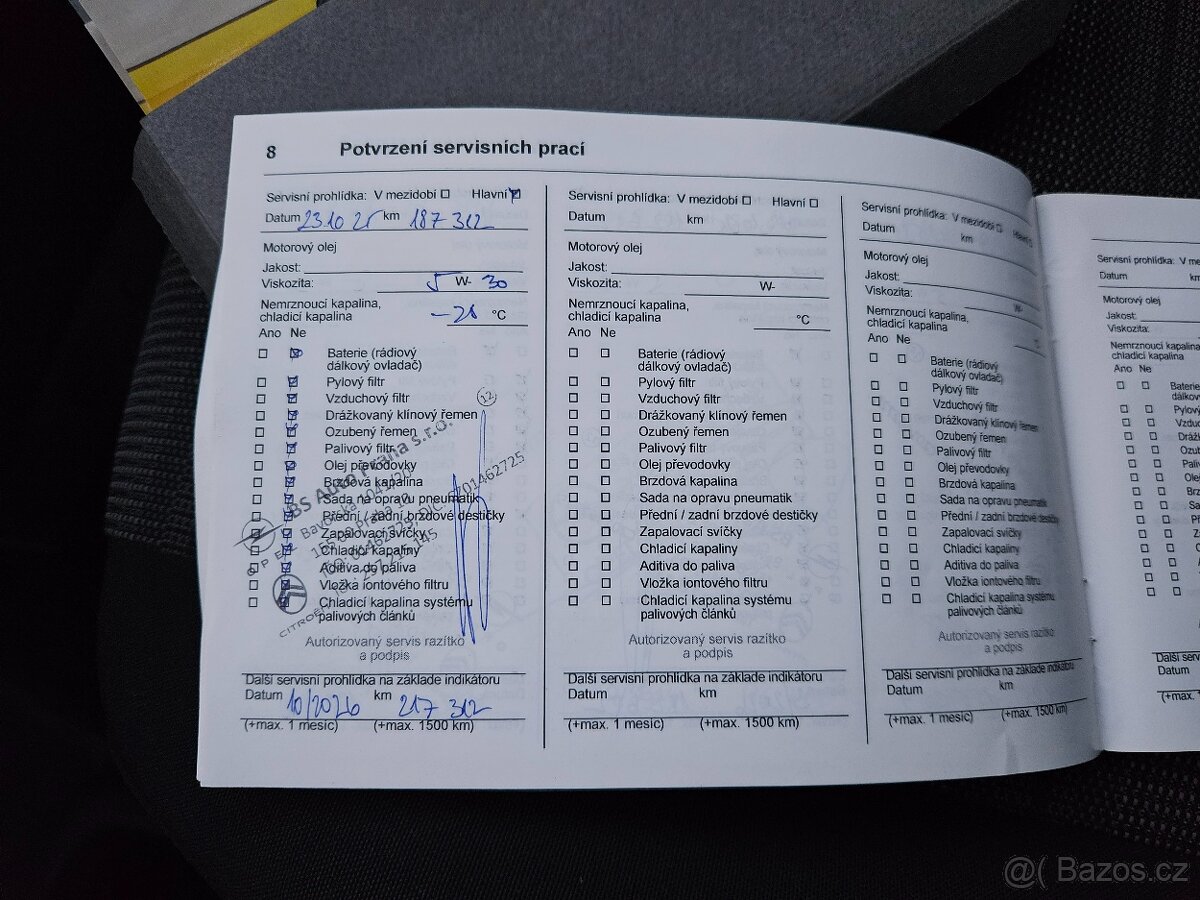 8 Potvrzení servisních prací
Servisní prohlídka: V mezidobí ☐ Hlavní ☒
Datum 23 10 25 km 187 312
Motorový olej
Jakost:
Viskozita: 5 W- 30
Nemrznoucí kapalina,
chladicí kapalina -28 °C
Ano Ne
☐ ☒ Baterie (rádiový
dálkový ovladač)
☐ ☒ Pylový filtr
☐ ☒ Vzduchový filtr
☐ ☒ Drážkovaný klínový řemen
☐ ☒ Ozubený řemen
☐ ☒ Palivový filtr
☐ ☒ Olej převodovky
☐ ☒ Brzdová kapalina
☐ ☒ Sada na opravu pneumatik
☐ ☒ Přední / zadní brzdové destičky
☐ ☒ Zapalovací svíčky
☐ ☒ Chladicí kapaliny
☐ ☒ Aditiva do paliva
☐ ☒ Vložka iontového filtru
☐ ☒ Chladicí kapalina systému
palivových článků
12
Auto Praha s.r.o.
OPEL
CITROËN
Autorizovaný servis razítko
a podpis
Další servisní prohlídka na základě indikátoru
Datum 10/2026 km 217 312
(+max. 1 měsíc) (+max. 1500 km)
Servisní prohlídka: V mezidobí ☐ Hlavní ☐
Datum km
Motorový olej
Jakost:
Viskozita: W-
Nemrznoucí kapalina,
chladicí kapalina °C
Ano Ne
☐ ☐ Baterie (rádiový
dálkový ovladač)
☐ ☐ Pylový filtr
☐ ☐ Vzduchový filtr
☐ ☐ Drážkovaný klínový řemen
☐ ☐ Ozubený řemen
☐ ☐ Palivový filtr
☐ ☐ Olej převodovky
☐ ☐ Brzdová kapalina
☐ ☐ Sada na opravu pneumatik
☐ ☐ Přední / zadní brzdové destičky
☐ ☐ Zapalovací svíčky
☐ ☐ Chladicí kapaliny
☐ ☐ Aditiva do paliva
☐ ☐ Vložka iontového filtru
☐ ☐ Chladicí kapalina systému
palivových článků
Autorizovaný servis razítko
a podpis
Další servisní prohlídka na základě indikátoru
Datum km
(+max. 1 měsíc) (+max. 1500 km)
Servisní prohlídka: V mezidobí ☐ Hlavní ☐
Datum km
Motorový olej
Jakost:
Viskozita: W-
Nemrznoucí kapalina,
chladicí kapalina °C
Ano Ne
☐ ☐ Baterie (rádiový
dálkový ovladač)
☐ ☐ Pylový filtr
☐ ☐ Vzduchový filtr
☐ ☐ Drážkovaný klínový řemen
☐ ☐ Ozubený řemen
☐ ☐ Palivový filtr
☐ ☐ Olej převodovky
☐ ☐ Brzdová kapalina
☐ ☐ Sada na opravu pneumatik
☐ ☐ Přední / zadní brzdové destičky
☐ ☐ Zapalovací svíčky
☐ ☐ Chladicí kapaliny
☐ ☐ Aditiva do paliva
☐ ☐ Vložka iontového filtru
☐ ☐ Chladicí kapalina systému
palivových článků
Autorizovaný servis razítko
a podpis
Další servisní prohlídka na základě indikátoru
Datum km
(+max. 1 měsíc) (+max. 1500 km)
Servisní prohlídka: V me
Datum km
Motorový olej
Jakost:
Viskozita:
Nemrznoucí kapalina,
chladicí kapalina
Ano Ne
☐ ☐ Baterie
dálkov
☐ ☐ Pylov
☐ ☐ Vzduc
☐ ☐ Dráž
☐ ☐ Ozub
☐ ☐ Pali
☐ ☐ Ole
☐ ☐ Brz
☐ ☐ Sa
☐ ☐ Př
Další serv
Datum
(+max. 1
@( Bazos.cz